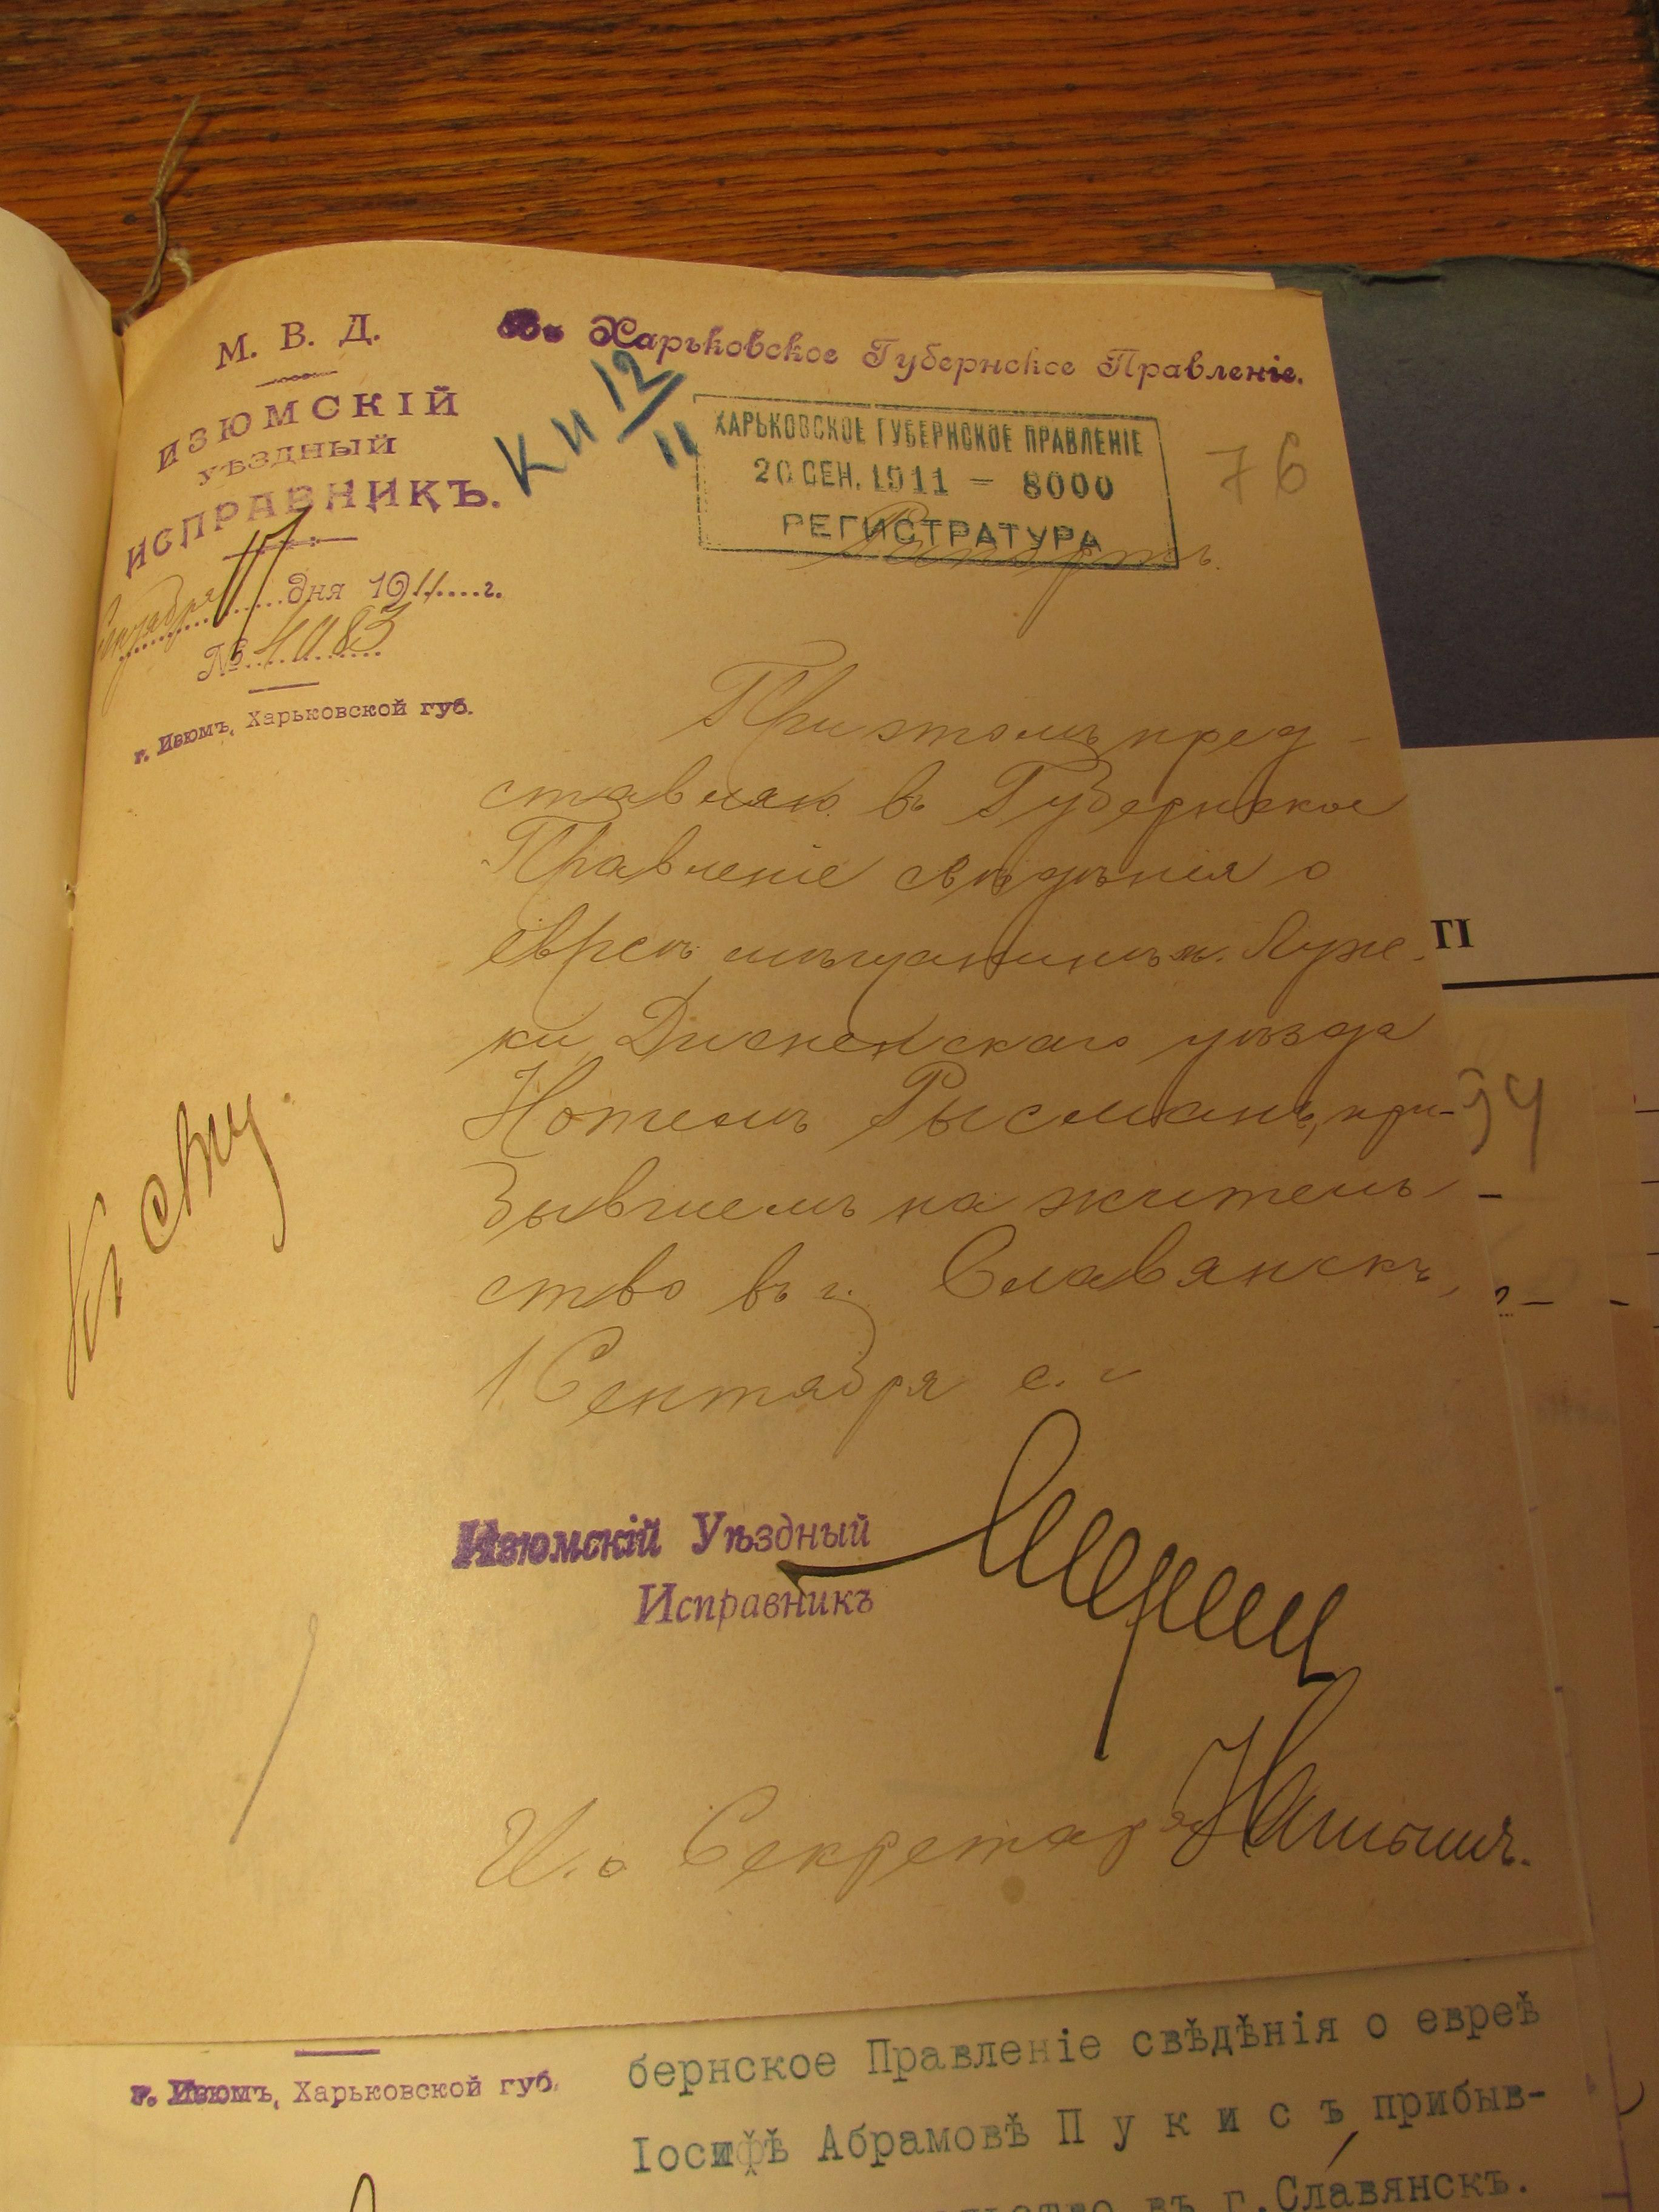 М. В. Д.
ИЗЮМСКІЙ
УѢЗДНЫЙ
ИСПРАВНИКЪ.
Сентября 17 дня 1911 г.
№ 4083
г. Изюмъ, Харьковской губ.
Въ Харьковское Губернское Правленіе.
КИ 12/11
ХАРЬКОВСКОЕ ГУБЕРНСКОЕ ПРАВЛЕНІЕ
20 СЕН. 1911 — 8000
РЕГИСТРАТУРА
76
Рапортъ.
При этомъ пред-
ставляю въ Губернское
Правленіе свѣдѣнія о
евреѣ мѣщанинѣ м. Луж-
ки Дисненскаго уѣзда
Нотелѣ Рысманъ, при-
бывшемъ на житель
ство въ г. Славянскъ,
1 Сентября с. г.
Къ
Изюмскій Уѣздный
Исправникъ
И. о Секретаря
ТІ
94
г. Изюмъ, Харьковской губ.
бернское Правленіе свѣдѣнія о евреѣ
Іосифѣ Абрамовѣ П у к и с ъ прибыв-
въ г.Славянскъ.